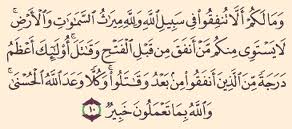 وَمَا لَكُمْ أَلَّا تُنفِقُوا۟ فِى سَبِيلِ ٱللَّهِ وَلِلَّهِ مِيرَٰثُ ٱلسَّمَٰوَٰتِ وَٱلْأَرْضِ ۚ
لَا يَسْتَوِى مِنكُم مَّنْ أَنفَقَ مِن قَبْلِ ٱلْفَتْحِ وَقَٰتَلَ ۚ أُو۟لَٰٓئِكَ أَعْظَمُ
دَرَجَةً مِّنَ ٱلَّذِينَ أَنفَقُوا۟ مِنۢ بَعْدُ وَقَٰتَلُوا۟ ۚ وَكُلًّا وَعَدَ ٱللَّهُ ٱلْحُسْنَىٰ ۚ
وَٱللَّهُ بِمَا تَعْمَلُونَ خَبِيرٌ ١٠